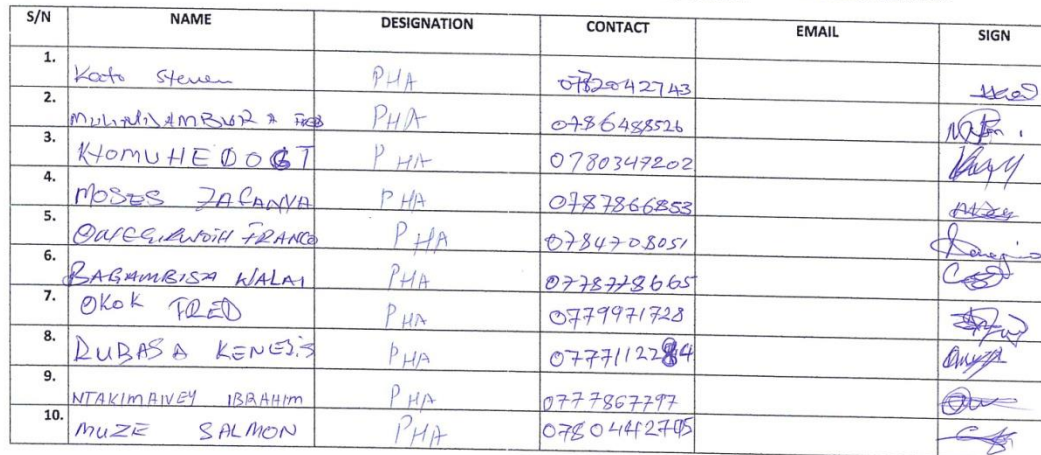 S/N NAME DESIGNATION CONTACT EMAIL SIGN
1. Kato Steven PHA 0782042743
2. PHA 0786488526
3. PHA 0780347202
4. MOSES ZAFANYA PHA 0787866853
5. FRANCO PHA 0784708051
6. BAGAMBISA WALAI PHA 0778778665
7. OKOK FRED PHA 0779971728
8. RUBASA KENESIS PHA 0777112284
9. NTAKIMAIVEY IBRAHIM PHA 0777867797
10. MUZE SALMON PHA